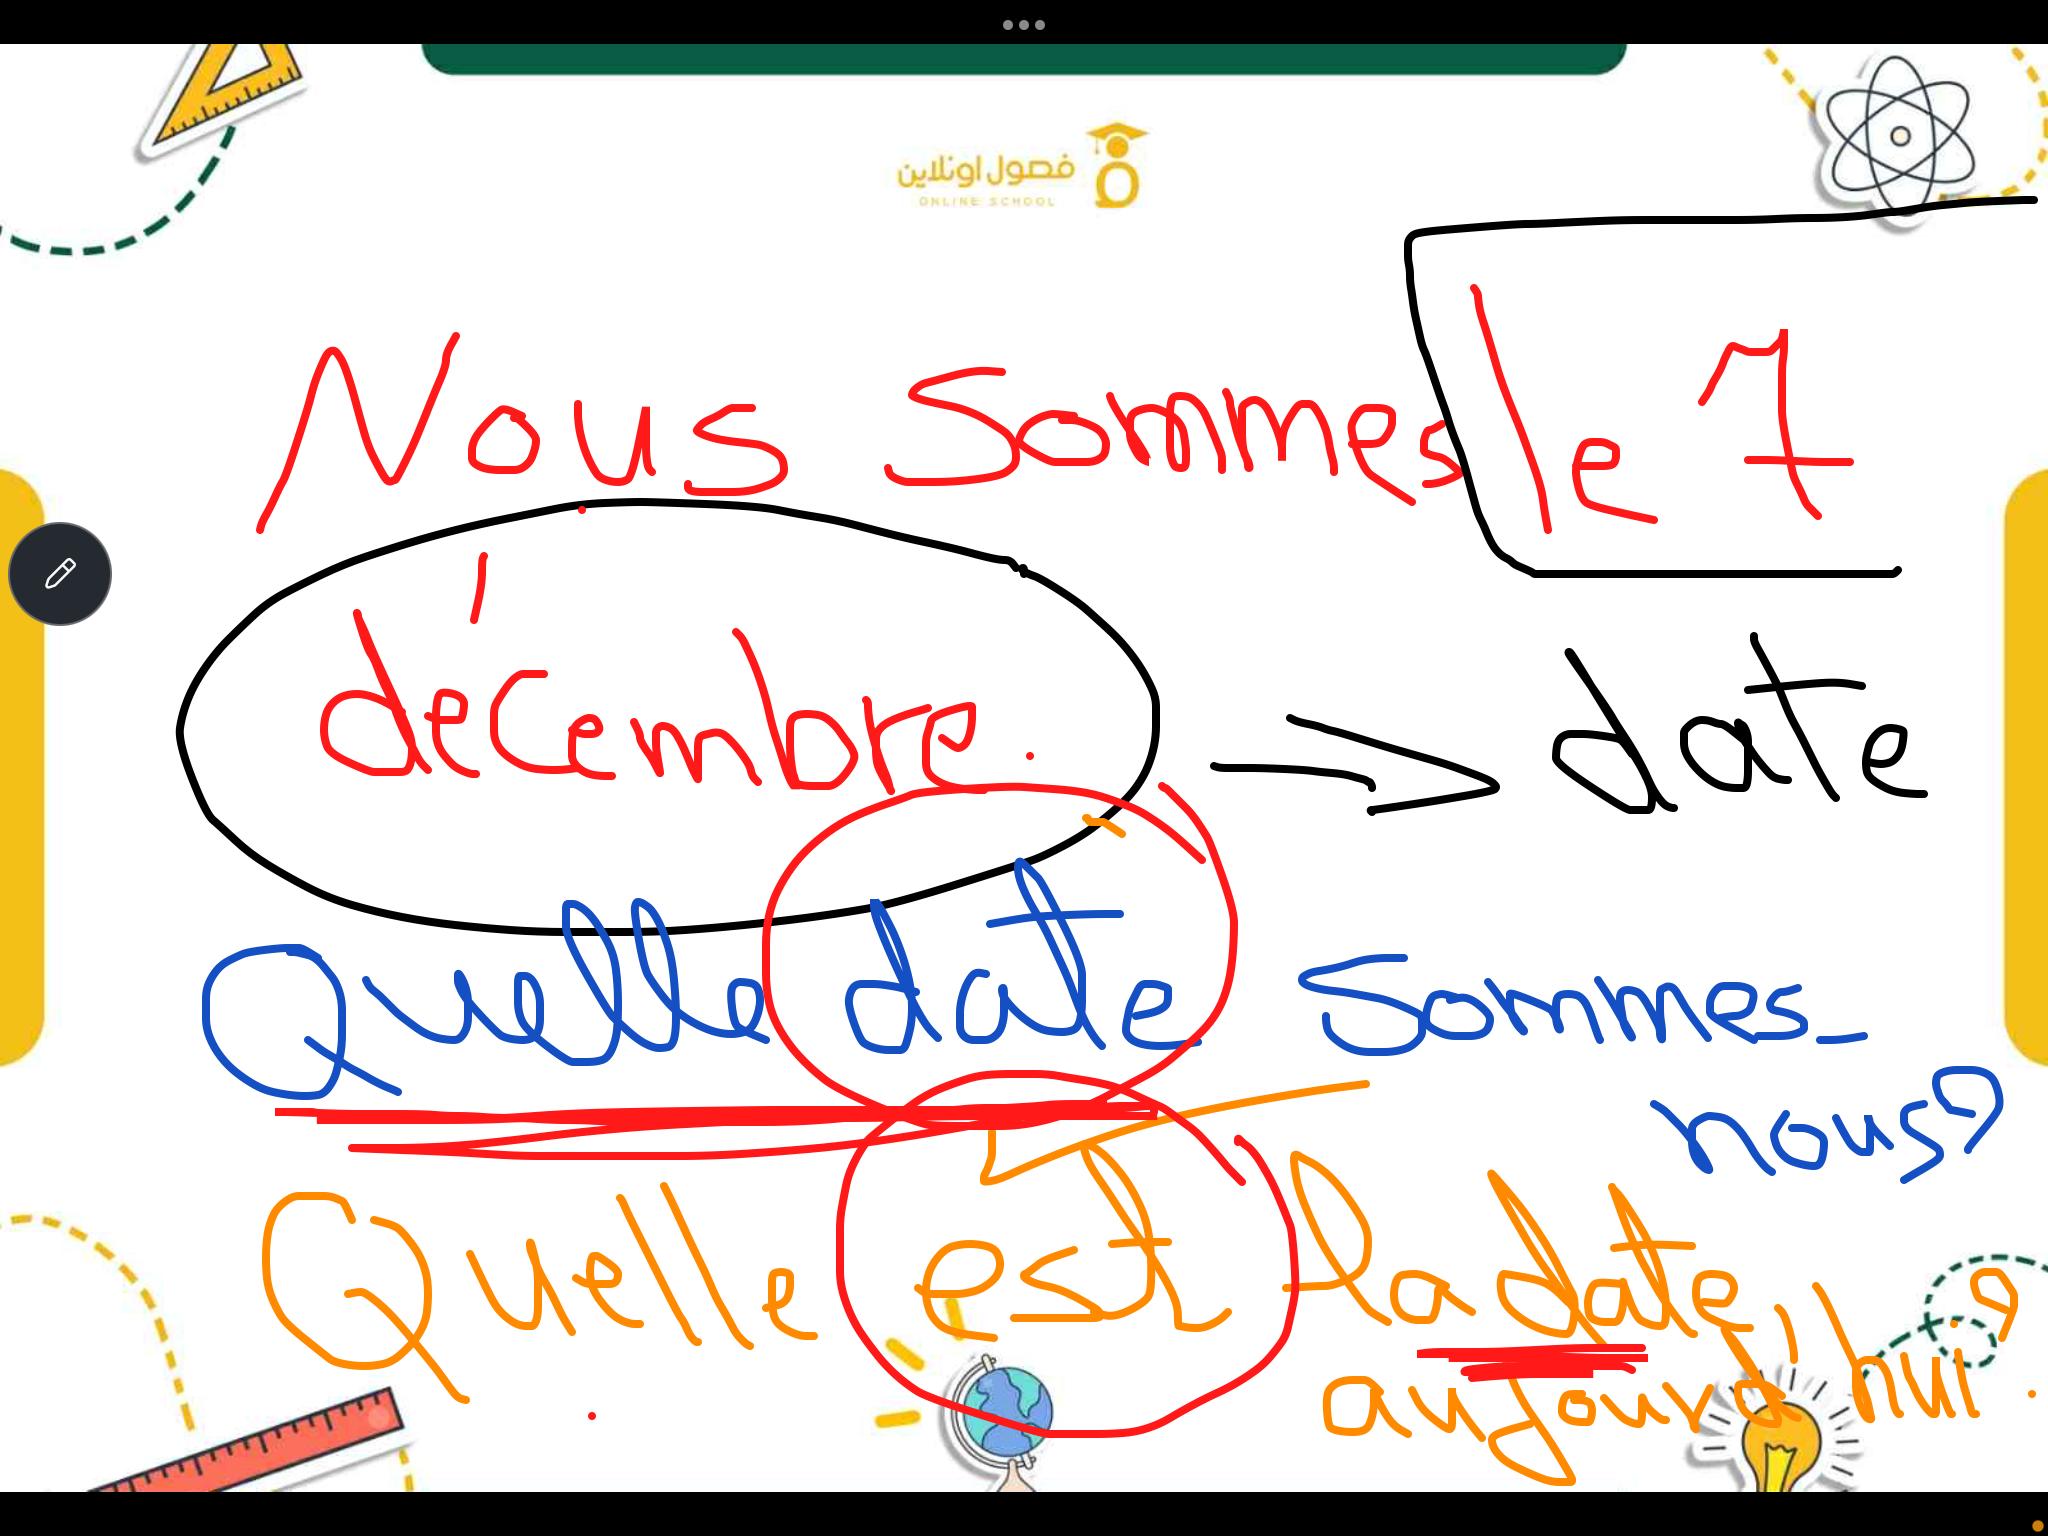 فصول اونلاين
ONLINE SCHOOL
Nous Sommes le 7
décembre. → date
Quelle date Sommes_
nous?
Quelle est la date
aujourd'hui?